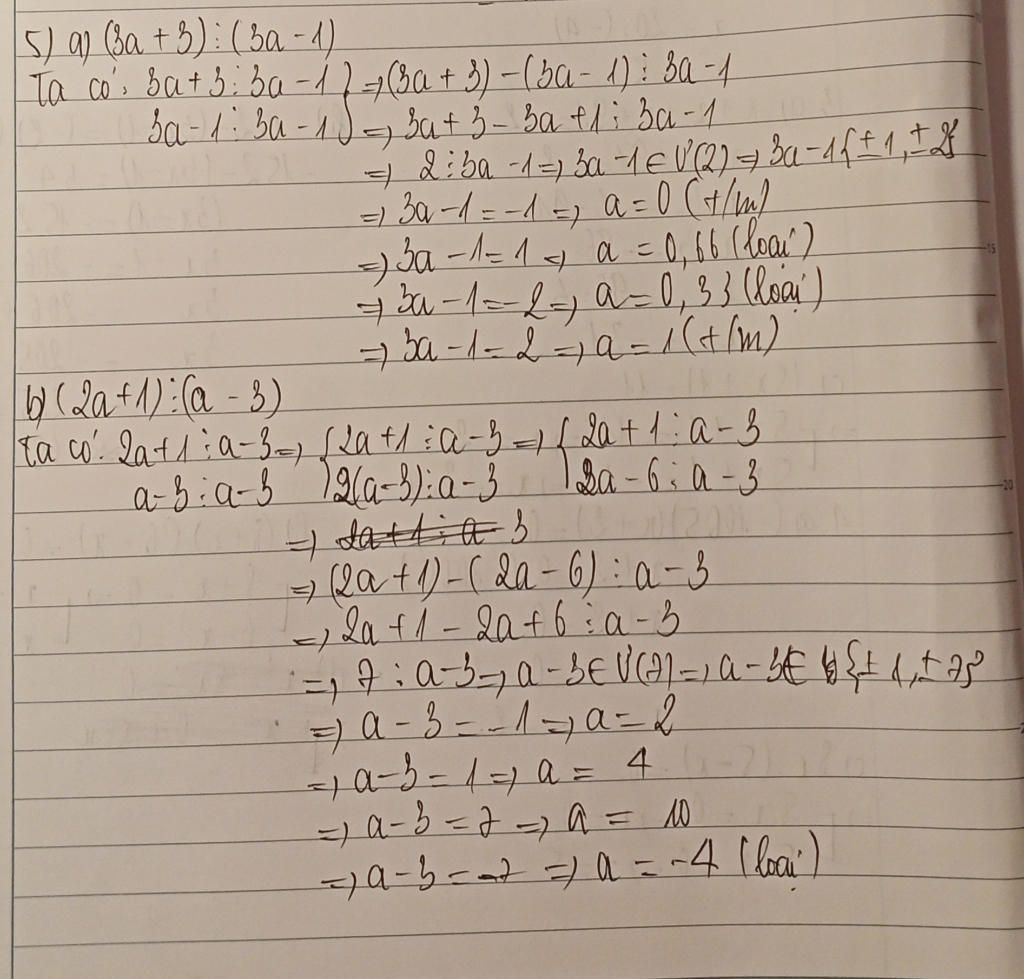 5) a) (3a + 3) ⋮ (3a - 1)
Ta có: 3a + 3 ⋮ 3a - 1 } => (3a + 3) - (3a - 1) ⋮ 3a - 1
3a - 1 ⋮ 3a - 1 } => 3a + 3 - 3a + 1 ⋮ 3a - 1
=> 2 ⋮ 3a - 1 => 3a - 1 ∈ Ư(2) => 3a - 1 {±1, ±2}
=> 3a - 1 = -1 => a = 0 (t/m)
=> 3a - 1 = 1 => a = 0,66 (loại)
=> 3a - 1 = -2 => a = 0,33 (loại)
=> 3a - 1 = 2 => a = 1 (t/m)
b) (2a + 1) ⋮ (a - 3)
Ta có: 2a + 1 ⋮ a - 3 => { 2a + 1 ⋮ a - 3 => { 2a + 1 ⋮ a - 3
a - 3 ⋮ a - 3 { 2(a - 3) ⋮ a - 3 { 2a - 6 ⋮ a - 3
=> 2a + 1 ⋮ a - 3
=> (2a + 1) - (2a - 6) ⋮ a - 3
=> 2a + 1 - 2a + 6 ⋮ a - 3
=> 7 ⋮ a - 3 => a - 3 ∈ Ư(7) => a - 3 ∈ {±1, ±7}
=> a - 3 = -1 => a = 2
=> a - 3 = 1 => a = 4
=> a - 3 = 7 => a = 10
=> a - 3 = -7 => a = -4 (loại)